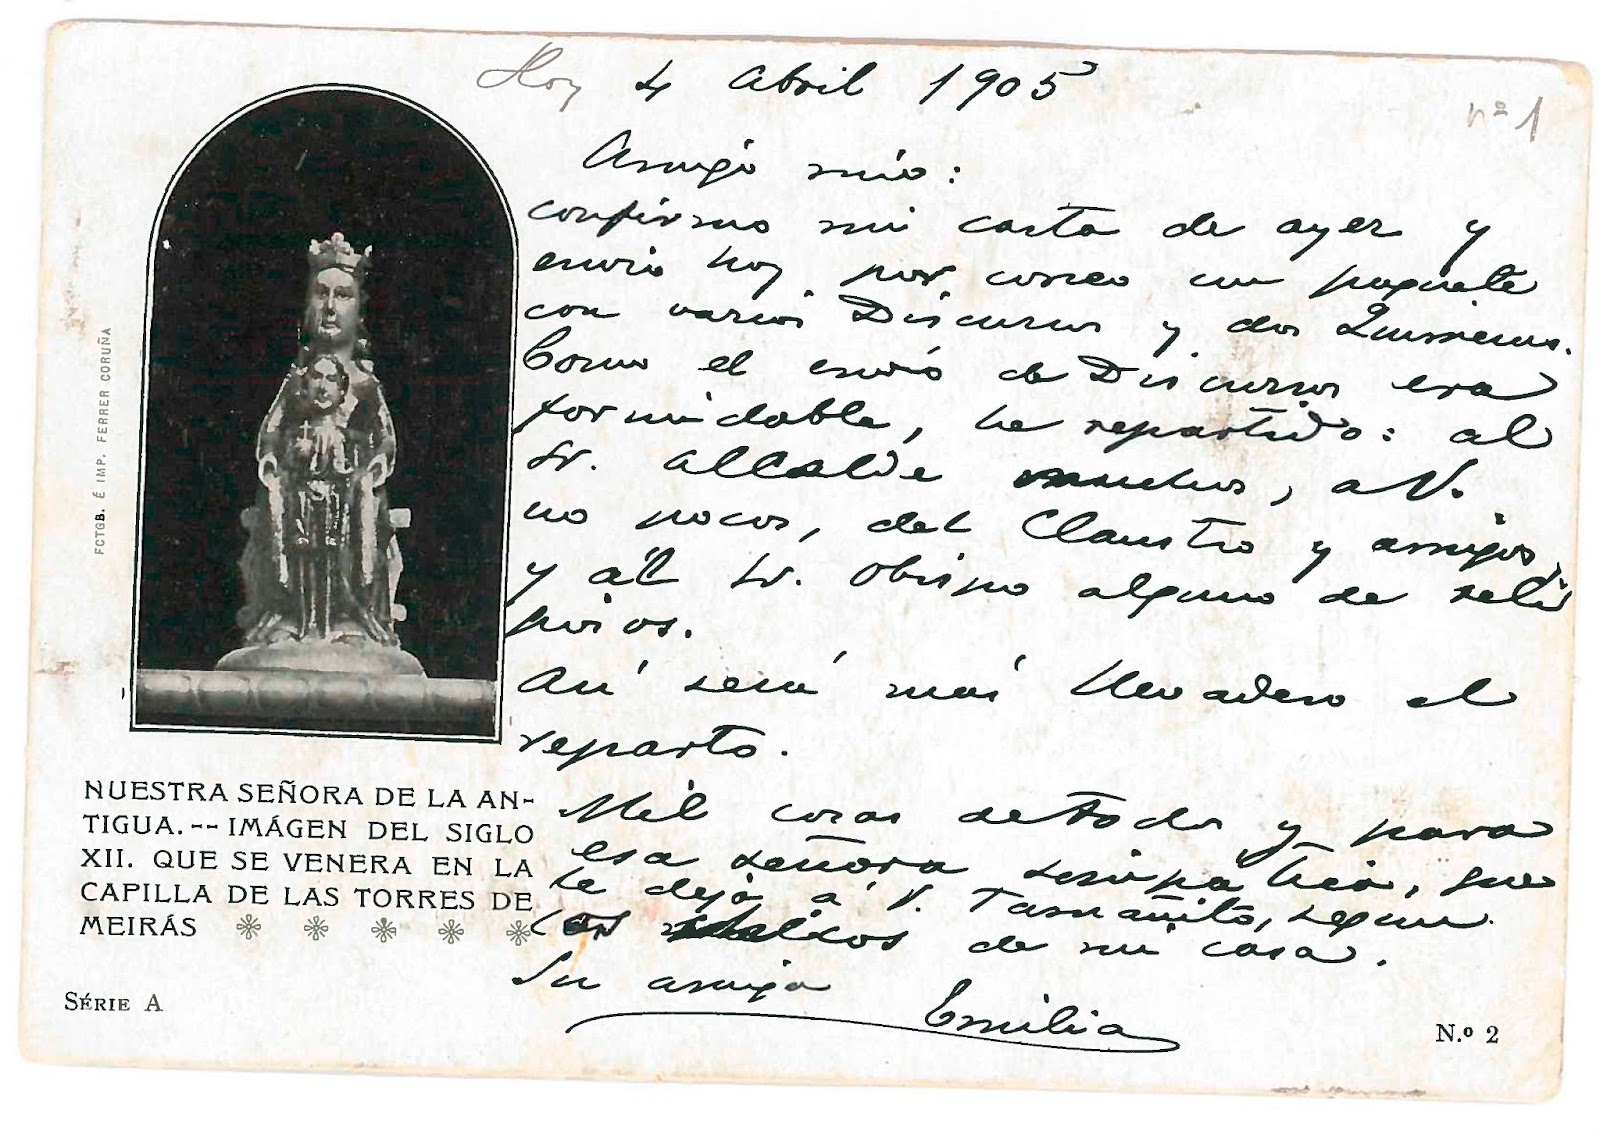 Hoy 4 Abril 1905
nº 1
Amigo mío:
confirmo mi carta de ayer y
envio hoy por correo un paquete
con varios Discursos y dos Quimeras.
Como el envío de Discursos era
formidable, he repartido: al
Sr. Alcalde muchos, a V.
no pocos, del Claustro y amigos,
y al Sr. Obispo alguno de reli
giosos.
Así será más llevadero el
reparto.
Mil cosas de todos y para
esa señora simpática, que
le dejó á V. Tamañito, según
los de mi casa.
Su amiga
Emilia
FCTGB. É IMP. FERRER CORUÑA
NUESTRA SEÑORA DE LA AN-
TIGUA.--IMÁGEN DEL SIGLO
XII. QUE SE VENERA EN LA
CAPILLA DE LAS TORRES DE
MEIRÁS
SÉRIE A
N.º 2